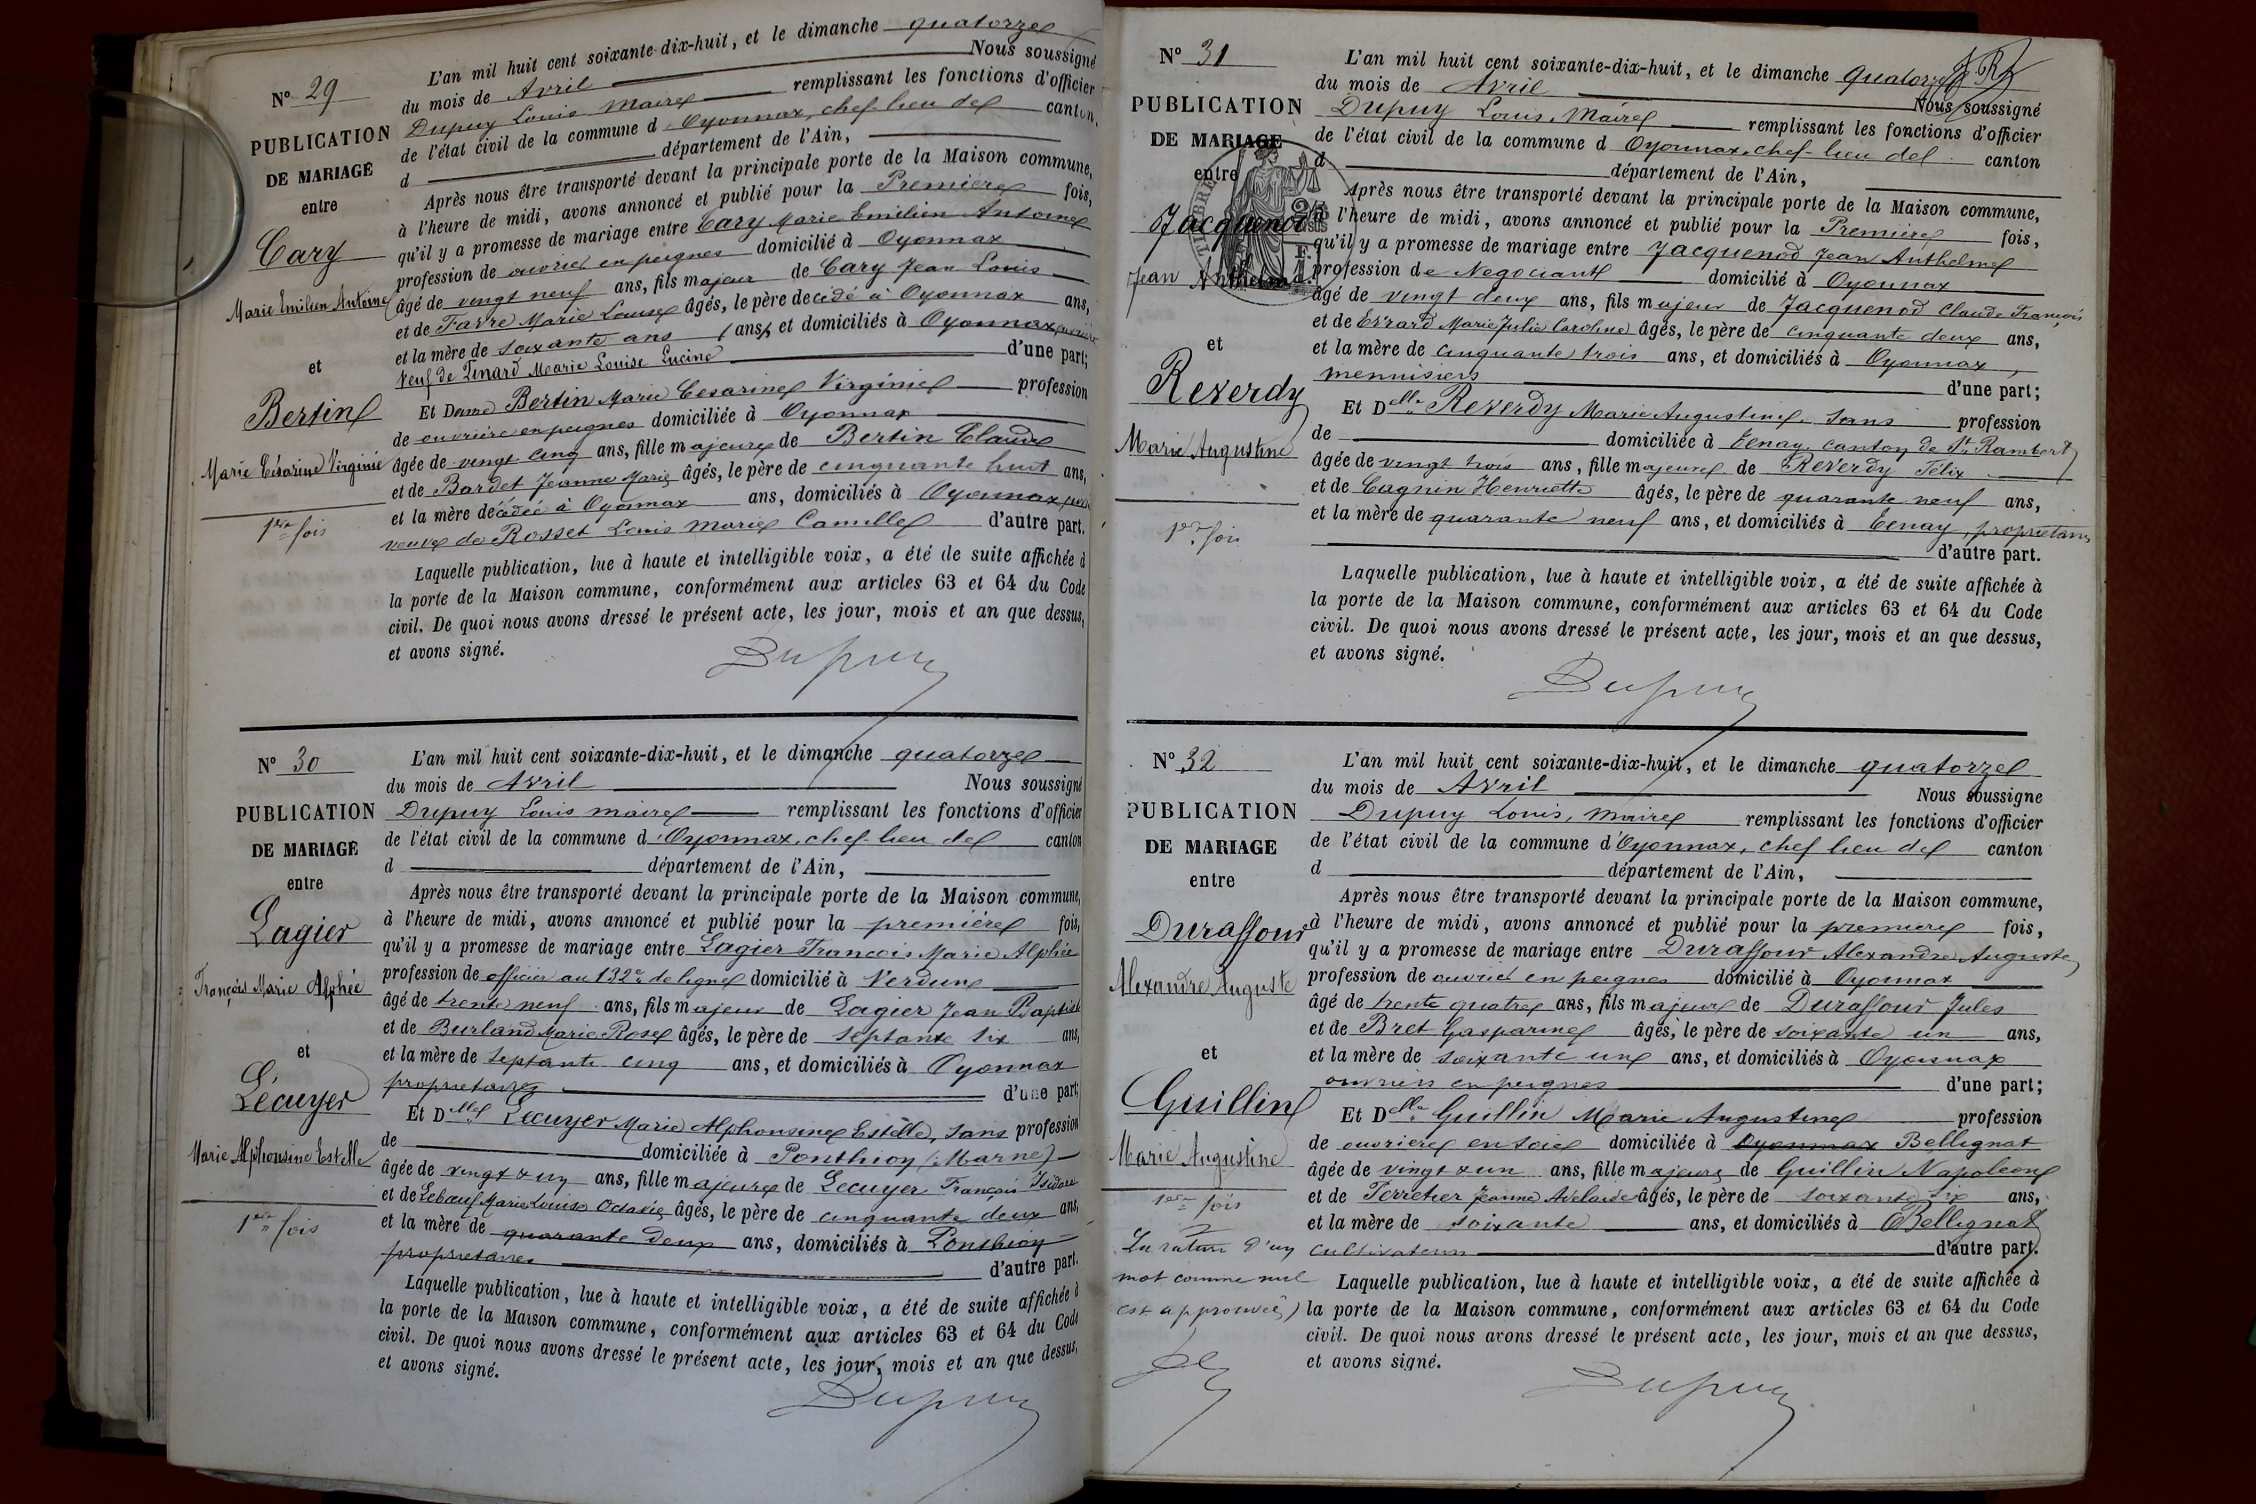 N° 29
PUBLICATION
DE MARIAGE
entre
Cary
Marie Emilien Antoine
et
Bertin
Marie Césarine Virginie
1ère fois
L'an mil huit cent soixante-dix-huit, et le dimanche quatorze
du mois de Avril Nous soussigné
Dupuy Louis Maire remplissant les fonctions d'officier
de l'état civil de la commune d Oyonnax, chef-lieu de canton.
d département de l'Ain,
Après nous être transporté devant la principale porte de la Maison commune,
à l'heure de midi, avons annoncé et publié pour la Première fois,
qu'il y a promesse de mariage entre Cary Marie Emilien Antoine
profession de ouvrier en peignes domicilié à Oyonnax
âgé de vingt neuf ans, fils majeur de Cary Jean Louis
et de Favre Marie Louise âgés, le père decédé à Oyonnax ans,
et la mère de soixante ans ans, et domiciliés à Oyonnax
Veuf de Lenard Marie Louise Lucine d'une part;
Et Dame Bertin Marie Cesarine Virginie profession
de ouvrière en peignes domiciliée à Oyonnax
âgée de vingt cinq ans, fille majeure de Bertin Claude
et de Bardet Jeanne Marie âgés, le père de cinquante huit ans,
et la mère décédée à Oyonnax ans, domiciliés à Oyonnax
veuve de Rosset Louis Marie Camille d'autre part.
Laquelle publication, lue à haute et intelligible voix, a été de suite affichée à
la porte de la Maison commune, conformément aux articles 63 et 64 du Code
civil. De quoi nous avons dressé le présent acte, les jour, mois et an que dessus,
et avons signé.
Dupuy
N° 30
PUBLICATION
DE MARIAGE
entre
Lagier
François Marie Alphée
et
Lécuyer
Marie Alphonsine Estelle
1ère fois
L'an mil huit cent soixante-dix-huit, et le dimanche quatorze
du mois de Avril Nous soussigné
Dupuy Louis maire remplissant les fonctions d'officier
de l'état civil de la commune d Oyonnax, chef-lieu de canton
d département de l'Ain,
Après nous être transporté devant la principale porte de la Maison commune,
à l'heure de midi, avons annoncé et publié pour la première fois,
qu'il y a promesse de mariage entre Lagier François Marie Alphée
profession de officier au 132e de ligne domicilié à Verdun
âgé de trente neuf ans, fils majeur de Lagier Jean Baptiste
et de Burland Marie Rose âgés, le père de septante six ans,
et la mère de septante cinq ans, et domiciliés à Oyonnax
propriétaires d'une part;
Et Dlle Lecuyer Marie Alphonsine Estelle, sans profession
de domiciliée à Ponthion (Marne)
âgée de vingt & un ans, fille majeure de Lecuyer François Isidore
et de Lebœuf Marie Louise Octavie âgés, le père de cinquante deux ans,
et la mère de quarante deux ans, domiciliés à Ponthion
propriétaires d'autre part.
Laquelle publication, lue à haute et intelligible voix, a été de suite affichée à
la porte de la Maison commune, conformément aux articles 63 et 64 du Code
civil. De quoi nous avons dressé le présent acte, les jour, mois et an que dessus,
et avons signé.
Dupuy
N° 31
PUBLICATION
DE MARIAGE
entre
Jacquenod
Jean Anthelme
et
Reverdy
Marie Augustine
1ère fois
L'an mil huit cent soixante-dix-huit, et le dimanche quatorze
du mois de Avril Nous soussigné
Dupuy Louis, Maire remplissant les fonctions d'officier
de l'état civil de la commune d Oyonnax, chef-lieu de canton
d département de l'Ain,
Après nous être transporté devant la principale porte de la Maison commune,
à l'heure de midi, avons annoncé et publié pour la Première fois,
qu'il y a promesse de mariage entre Jacquenod Jean Anthelme
profession de Negociant domicilié à Oyonnax
âgé de vingt deux ans, fils majeur de Jacquenod Claude François
et de Evrard Marie Julie Caroline âgés, le père de cinquante deux ans,
et la mère de cinquante trois ans, et domiciliés à Oyonnax,
menuisiers d'une part;
Et Dlle Reverdy Marie Augustine, sans profession
de domiciliée à Tenay canton de St Rambert
âgée de vingt trois ans, fille majeure de Reverdy Félix
et de Cagnin Henriette âgés, le père de quarante neuf ans,
et la mère de quarante neuf ans, et domiciliés à Tenay, propriétaires
d'autre part.
Laquelle publication, lue à haute et intelligible voix, a été de suite affichée à
la porte de la Maison commune, conformément aux articles 63 et 64 du Code
civil. De quoi nous avons dressé le présent acte, les jour, mois et an que dessus,
et avons signé.
Dupuy
N° 32
PUBLICATION
DE MARIAGE
entre
Duraffour
Alexandre Auguste
et
Guillin
Marie Augustine
1ère fois
La rature d'un
mot comme nul
est approuvée
L'an mil huit cent soixante-dix-huit, et le dimanche quatorze
du mois de Avril Nous soussigné
Dupuy Louis, Maire remplissant les fonctions d'officier
de l'état civil de la commune d'Oyonnax, chef lieu de canton
d département de l'Ain,
Après nous être transporté devant la principale porte de la Maison commune,
à l'heure de midi, avons annoncé et publié pour la première fois,
qu'il y a promesse de mariage entre Duraffour Alexandre Auguste
profession de ouvrier en peignes domicilié à Oyonnax
âgé de trente quatre ans, fils majeur de Duraffour Jules
et de Bret Gasparine âgés, le père de soixante un ans,
et la mère de soixante une ans, et domiciliés à Oyonnax
ouvriers en peignes d'une part;
Et Dlle Guillin Marie Augustine profession
de ouvrière en soie domiciliée à Oyonnax Bellignat
âgée de vingt & un ans, fille majeure de Guillin Napoleon
et de Perretier Jeanne Adelaide âgés, le père de soixante six ans,
et la mère de soixante ans, et domiciliés à Bellignat
cultivateurs d'autre part.
Laquelle publication, lue à haute et intelligible voix, a été de suite affichée à
la porte de la Maison commune, conformément aux articles 63 et 64 du Code
civil. De quoi nous avons dressé le présent acte, les jour, mois et an que dessus,
et avons signé.
Dupuy